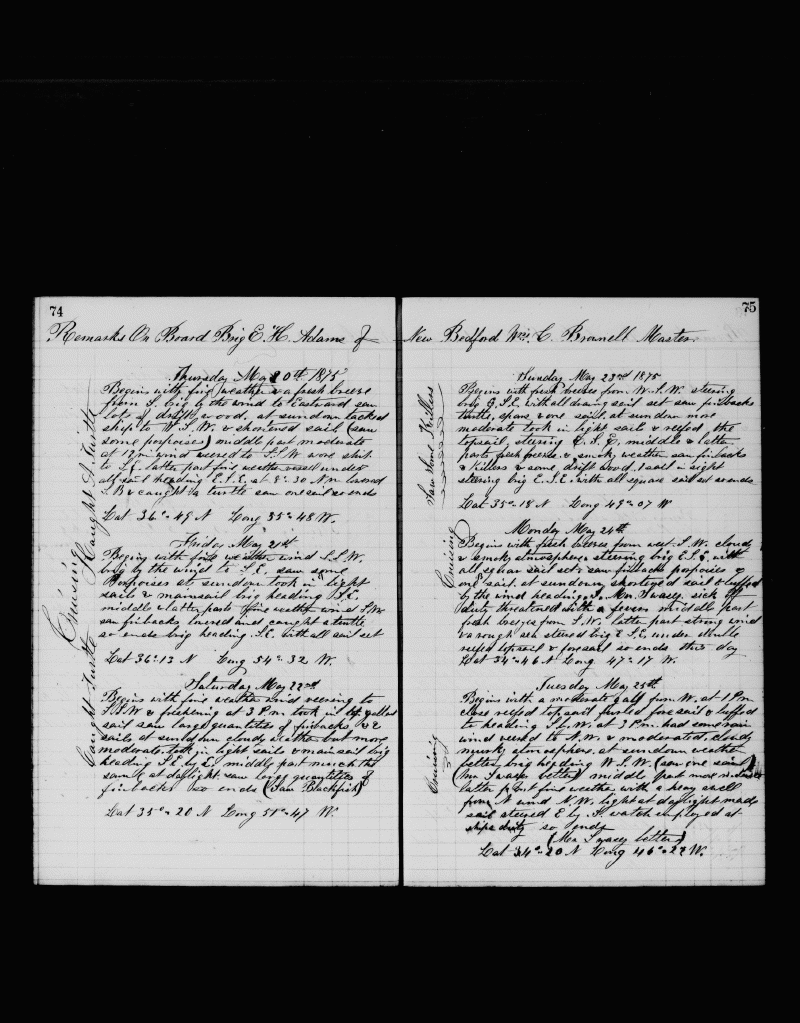 74
Remarks On Board Brig E. H. Adams of
Caught A Turtle
Cruising
Caught Turtle
Thursday May 20th 1875
Begins with fine weather & a fresh breeze
from S. brig by the wind to Eastward saw
lots of drift wood, at sundown tacked
ship to W.S.W. & shortened sail (saw
some porpoises) middle part moderate
at 12 m wind veered to S.S.W wore ship
to S.E. latter part fine weather vessel under
all sail heading E.S.E. at 8-30 A.m lowered
S.B & caught a turtle saw one sail so ends
Lat 36°-49 N Long 55°-48 W.
Friday May 21st
Begins with fine weather wind S.S.W.
brig by the wind to S.E. saw some
Porpoises at sundown took in light
sails & mainsail brig heading S.E.
middle & latter parts fine weather wind S.W.
saw finbacks lowered and caught a turtle
so ends brig heading S.E. with all sail set
Lat 36°-13 N Long 54°-32 W.
Saturday May 22nd
Begins with fine weather wind veering to
S.S.W & freshening at 3 P.m. took in top gallant
sail saw large quantities of finbacks & 2
sails at sundown cloudy weather but more
moderate, took in light sails & main sail brig
heading S.E. by E. middle part much the
same at daylight saw large quantities of
finbacks so ends (Saw Blackfish)
Lat 35°-20 N Long 51°-47 W.
75
New Bedford Wm. C. Brownell Master
Saw some Killers
Cruising
Cruising
Sunday May 23rd 1875
Begins with fresh breezes from W.S.W. steering
brig E.S.E. with all drawing sail set saw finbacks
turtle, spars & one sail, at sundown more
moderate took in light sail & reefed the
topsail, steering E.S.E, middle & latter
parts fresh breeze & smoky weather saw finbacks
& Killers & some drift wood, 1 sail in sight
steering brig E.S.E. with all square sail set so ends
Lat 35°-18 N Long 49°-07 W
Monday May 24th
Begins with fresh breezes from west. S.W. cloudy
& smoky atmosphere steering brig E.S.E. with
all square sail set & saw finbacks porpoises &
one sail. at sundown shortened sail & luffed
by the wind heading S. Mr. Swasey sick off
duty threatened with a fever middle part
fresh breezes from S.W. latter part strong wind
& a rough sea steered brig E.S.E. under double
reefed topsail & foresail so ends this day
Lat 34°-46 N Long 47°-17 W.
Tuesday May 25th
Begins with a moderate gale from W. at 1 P.m
close reefed topsail furled fore sail & luffed
to heading S.S.W. at 3 P.m. had some rain
wind veered to N.W. & moderated, cloudy
murky atmosphere, at sundown weather
better, brig heading W.S.W. (saw one sail)
(Mr Swasey better) middle part more moderate
latter part fine weather with a heavy swell
from N wind N.W. light at daylight made
sail steered E by S. watch employed at
ships duty so ends
(Mr Swasey better)
Lat 34°-20 N Long 46°-22 W.